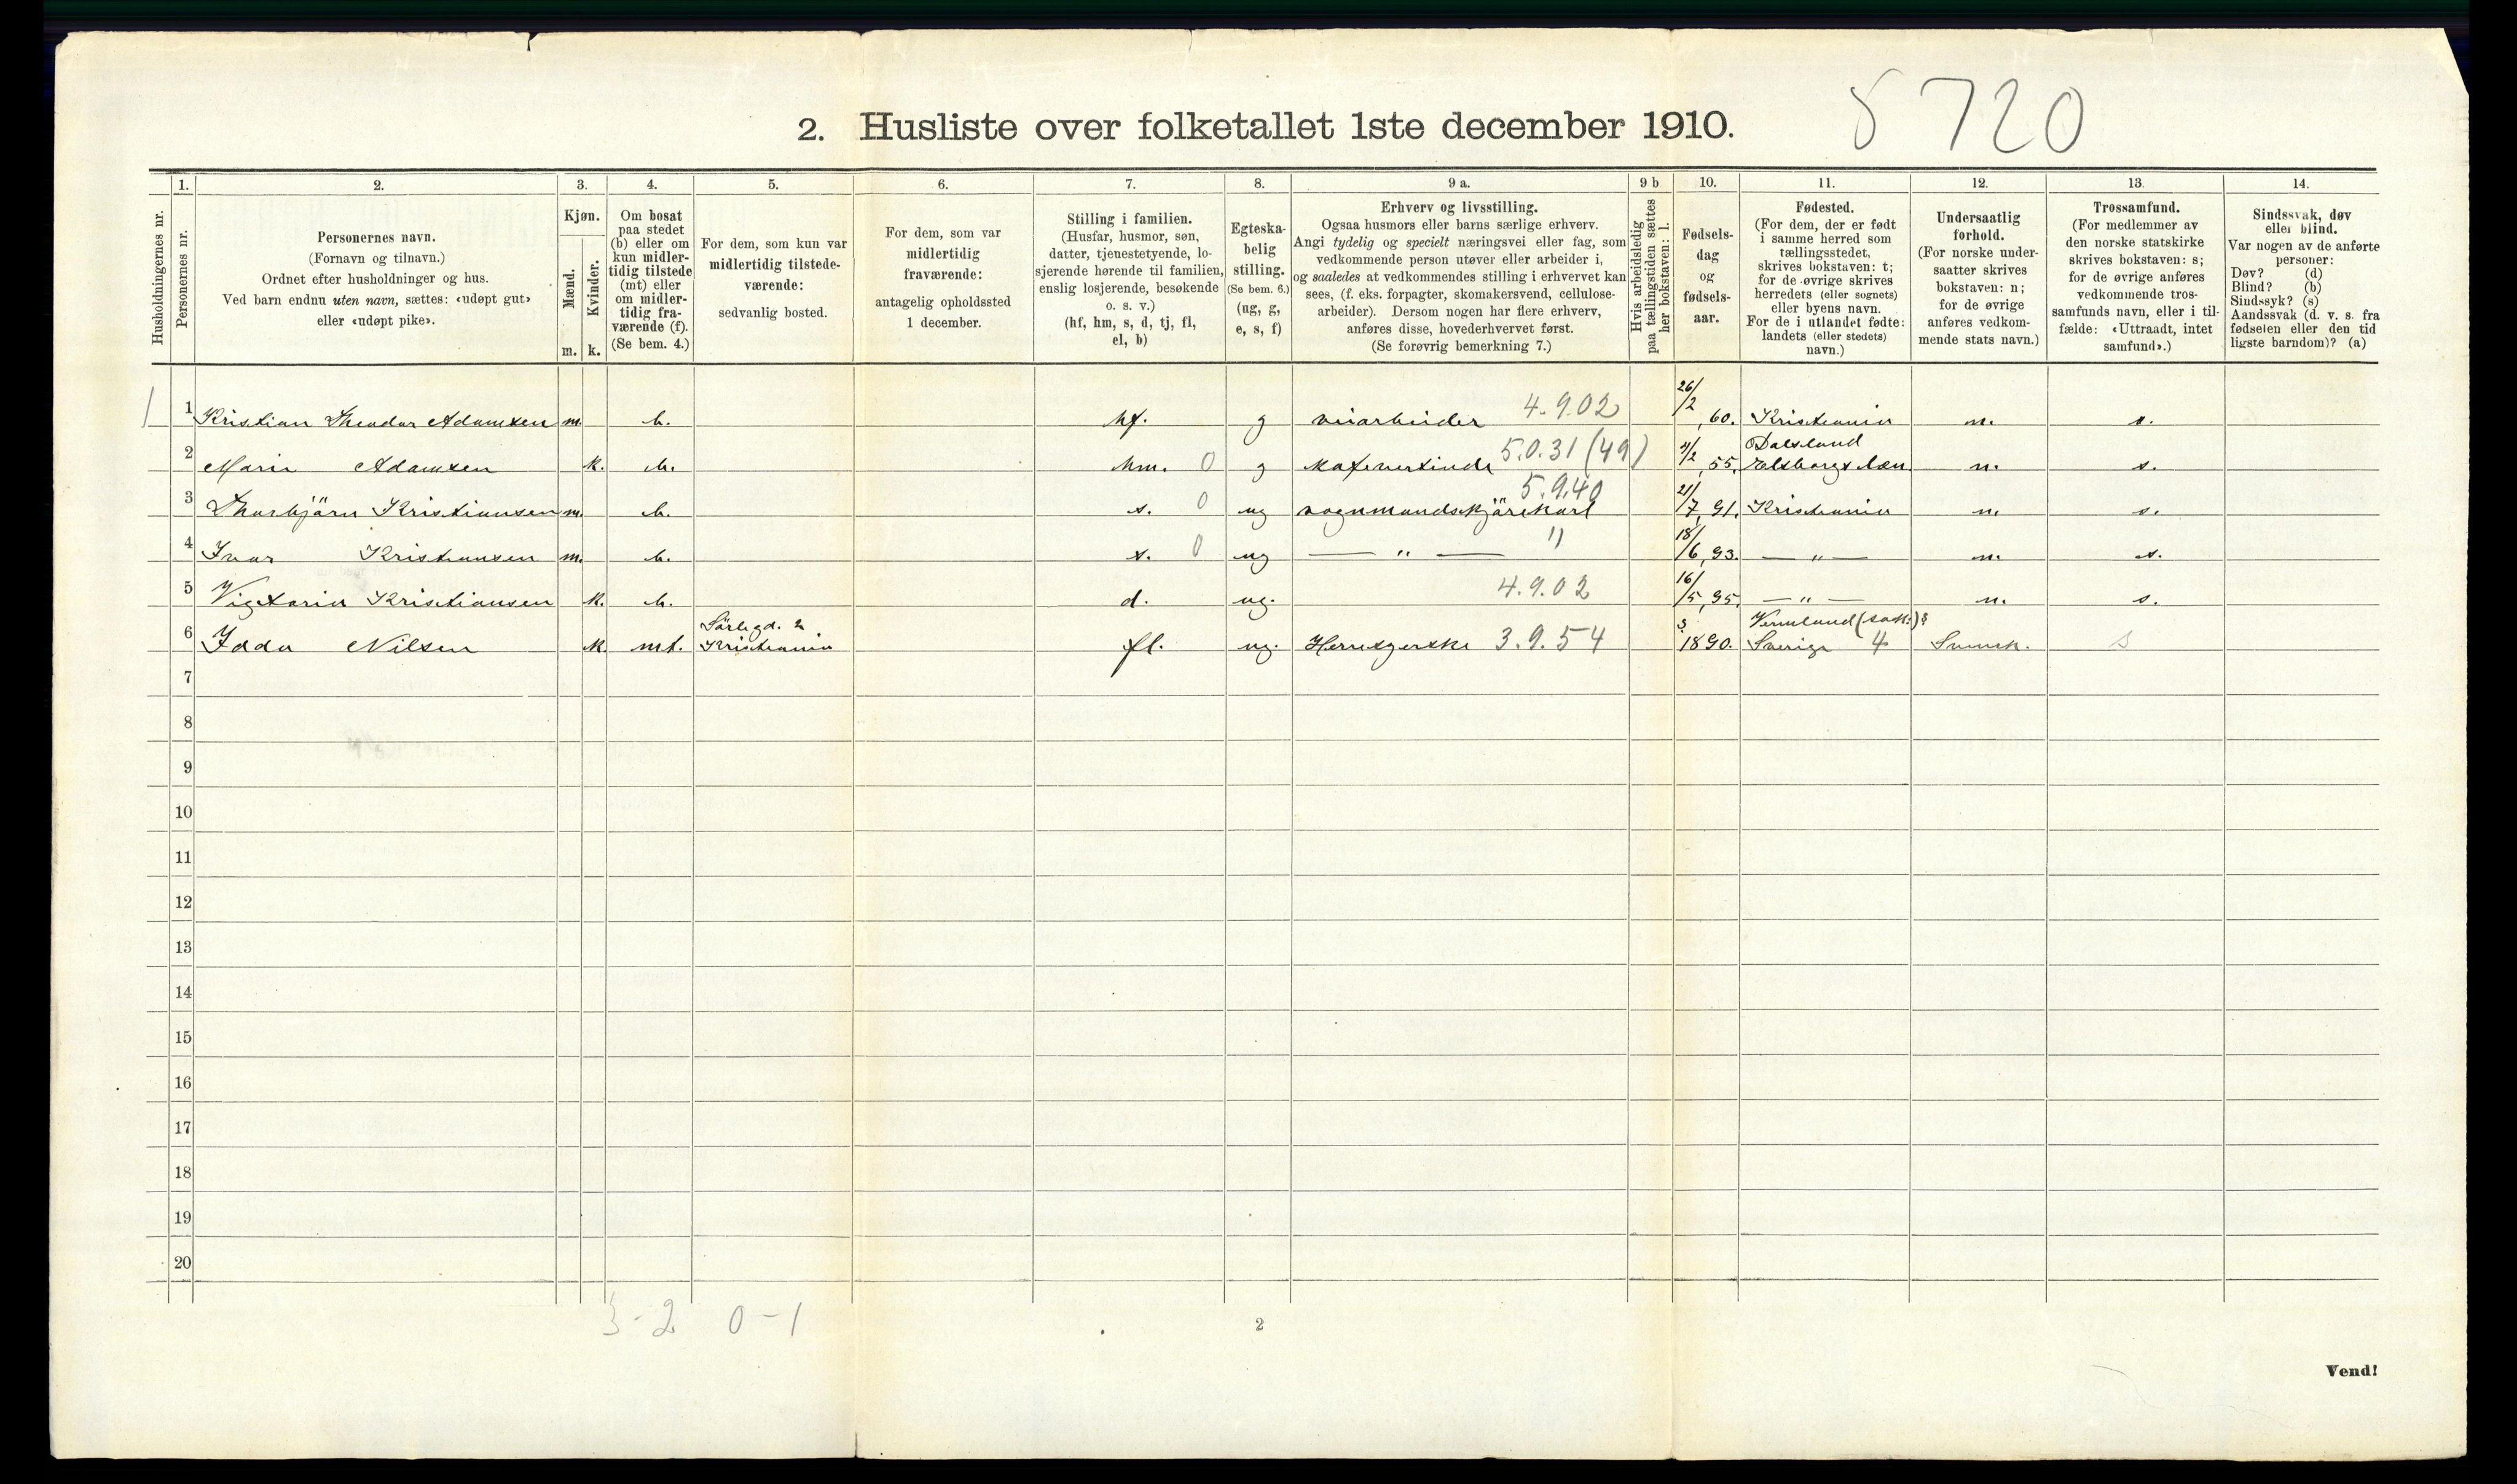 8 720
2. Husliste over folketallet 1ste december 1910.
Husholdningernes nr.
1.
Personernes nr.
2.
Personernes navn.
(Fornavn og tilnavn.)
Ordnet efter husholdninger og hus.
Ved barn endnu uten navn, sættes: «udøpt gut»
eller «udøpt pike».
3.
Kjøn.
Mænd.
Kvinder.
m. k.
4.
Om bosat
paa stedet
(b) eller om
kun midler-
tidig tilstede
(mt) eller
om midler-
tidig fra-
værende (f).
(Se bem. 4.)
5.
For dem, som kun var
midlertidig tilstede-
værende:
sedvanlig bosted.
6.
For dem, som var
midlertidig
fraværende:
antagelig opholdssted
1 december.
7.
Stilling i familien.
(Husfar, husmor, søn,
datter, tjenestetyende, lo-
sjerende hørende til familien,
enslig losjerende, besøkende
o. s. v.)
(hf, hm, s, d, tj, fl,
el, b)
8.
Egteska-
belig
stilling.
(Se bem. 6.)
(ug, g,
e, s, f)
9 a.
Erhverv og livsstilling.
Ogsaa husmors eller barns særlige erhverv.
Angi tydelig og specielt næringsvei eller fag, som
vedkommende person utøver eller arbeider i,
og saaledes at vedkommendes stilling i erhvervet kan
sees, (f. eks. forpagter, skomakersvend, cellulose-
arbeider). Dersom nogen har flere erhverv,
anføres disse, hovederhvervet først.
(Se forøvrig bemerkning 7.)
9 b
Hvis arbeidsledig
paa tællingstiden sættes
her bokstaven: l.
10.
Fødsels-
dag
og
fødsels-
aar.
11.
Fødested.
(For dem, der er født
i samme herred som
tællingsstedet,
skrives bokstaven: t;
for de øvrige skrives
herredets (eller sognets)
eller byens navn.
For de i utlandet fødte:
landets (eller stedets)
navn.)
12.
Undersaatlig
forhold.
(For norske under-
saatter skrives
bokstaven: n;
for de øvrige
anføres vedkom-
mende stats navn.)
13.
Trossamfund.
(For medlemmer av
den norske statskirke
skrives bokstaven: s;
for de øvrige anføres
vedkommende tros-
samfunds navn, eller i til-
fælde: «Uttraadt, intet
samfund».)
14.
Sindssvak, døv
eller blind.
Var nogen av de anførte
personer:
Døv? (d)
Blind? (b)
Sindssyk? (s)
Aandssvak (d. v. s. fra
fødselen eller den tid
ligste barndom)? (a)
1 1 Kristian Theodor Adamsen m. b. hf. g veiarbeider 4.9.02 26/2 60. Kristiania n. s.
2 Marie Adamsen k. b. hm. 0 g kafevertinde 5.0.31 (49) 4/2 55. Dalsland Elsborgs læn n. s.
3 Thorbjörn Kristiansen m. b. s. 0 ug vognmandskjörekarl 5.9.40 21/7 91. Kristiania n. s.
4 Ivar Kristiansen m. b. s. 0 ug — " — " 18/6 93. — " — n. s.
5 Vigtoria Kristiansen k. b. d. ug. 4.9.02 16/5 95. — " — n. s.
6 Idda Nilsen k. mt. Kristiania fl. ug. Herresyerske 3.9.54 ? 1890. Vermland Sverige 4 Svensk. s
7
8
9
10
11
12
13
14
15
16
17
18
19
20
3-2 0-1
2
Vend!